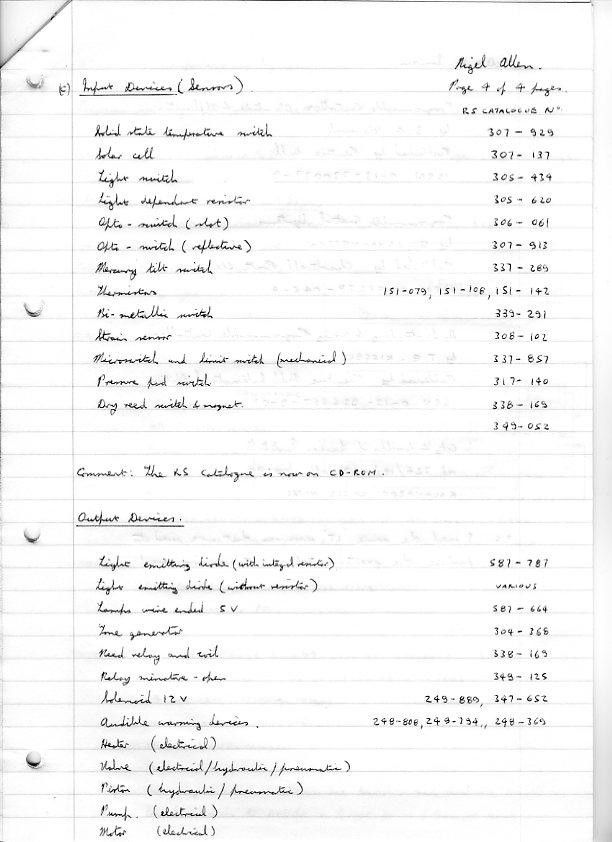 Nigel Allen.
(c) Input Devices (Sensors). Page 4 of 4 pages.
RS CATALOGUE No.
Solid state temperature switch 307-929
Solar cell 307-137
Light switch 305-434
Light dependent resistor 305-620
Opto-switch (slot) 306-061
Opto-switch (reflective) 307-913
Mercury tilt switch 337-289
Thermistors 151-079, 151-108, 151-142
Bi-metallic switch 339-291
Strain sensor 308-102
Microswitch and limit switch (mechanical) 337-857
Pressure pad switch 317-140
Dry reed switch & magnet. 338-169
349-052
Comment: The RS Catalogue is now on CD-ROM.
Output Devices.
Light emitting diode (with integral resistor) 587-787
Light emitting diode (without resistor) VARIOUS
Lamps wire ended 5V 587-664
Tone generator 304-368
Reed relay and coil 338-169
Relay minature-open 349-125
Solenoid 12V 249-889, 347-652
Audible warning devices. 248-808, 249-794, 248-369
Heater (electrical)
Valve (electrical/hydraulic/pneumatic)
Piston (hydraulic/pneumatic)
Pump. (electrical)
Motor (electrical)